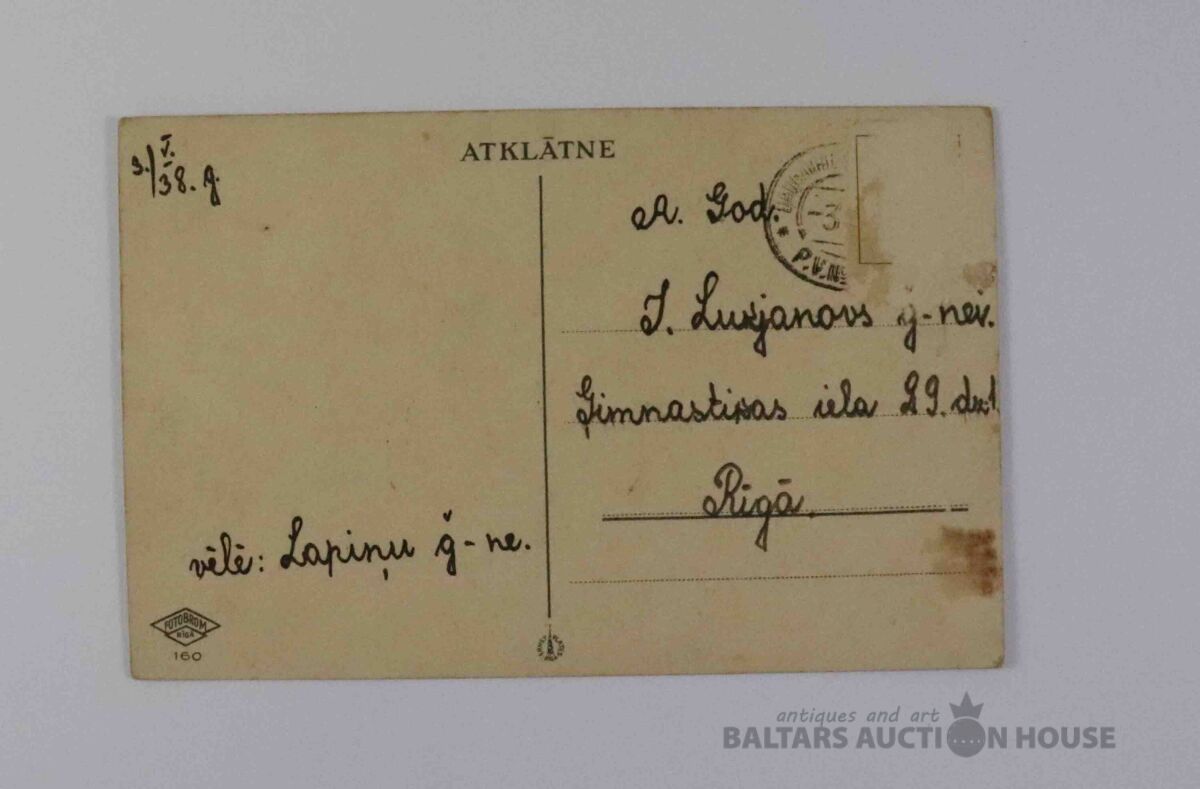 3./V. 38. g.
ATKLĀTNE
A. God.
J. Lukjanovs ģ-nei.
Ģimnastikas iela 29. dz. 1
Rīgā.
vēlē: Lapiņu ģ-ne.
FOTOBROM
RIGA
160
P.V.N
antiques and art
BALTARS AUCTION HOUSE